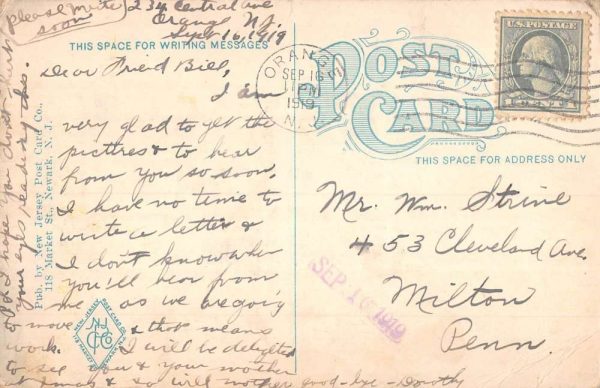 please write
soon
234 Central Ave
Orange N.J.
Sept 16, 1919
THIS SPACE FOR WRITING MESSAGES
Dear Friend Bill,
I am
very glad to get the
picttres & to hear
from you so soon.
I have no time to
write a letter &
I don't know when
you'll hear from
me as we are going
to move & that means
work. I will be delighted
to see you & your mother
at Xmas & so will mother good-bye - Dorothy
P.S. I hope you don't hurt
your eyes reading this.
Pub. by New Jersey Post Card Co.,
118 Market St., Newark, N. J.
NEW JERSEY POST CARD CO.
NJ
PCCO
118 MARKET ST. NEWARK N.J.
ORANGE
SEP 16
11 PM
1919
N.J.
POST
CARD
U.S. POSTAGE
1 CENT 1
THIS SPACE FOR ADDRESS ONLY
Mr. Wm. Strine
453 Cleveland Ave.
Milton
Penn.
SEP 1 1919